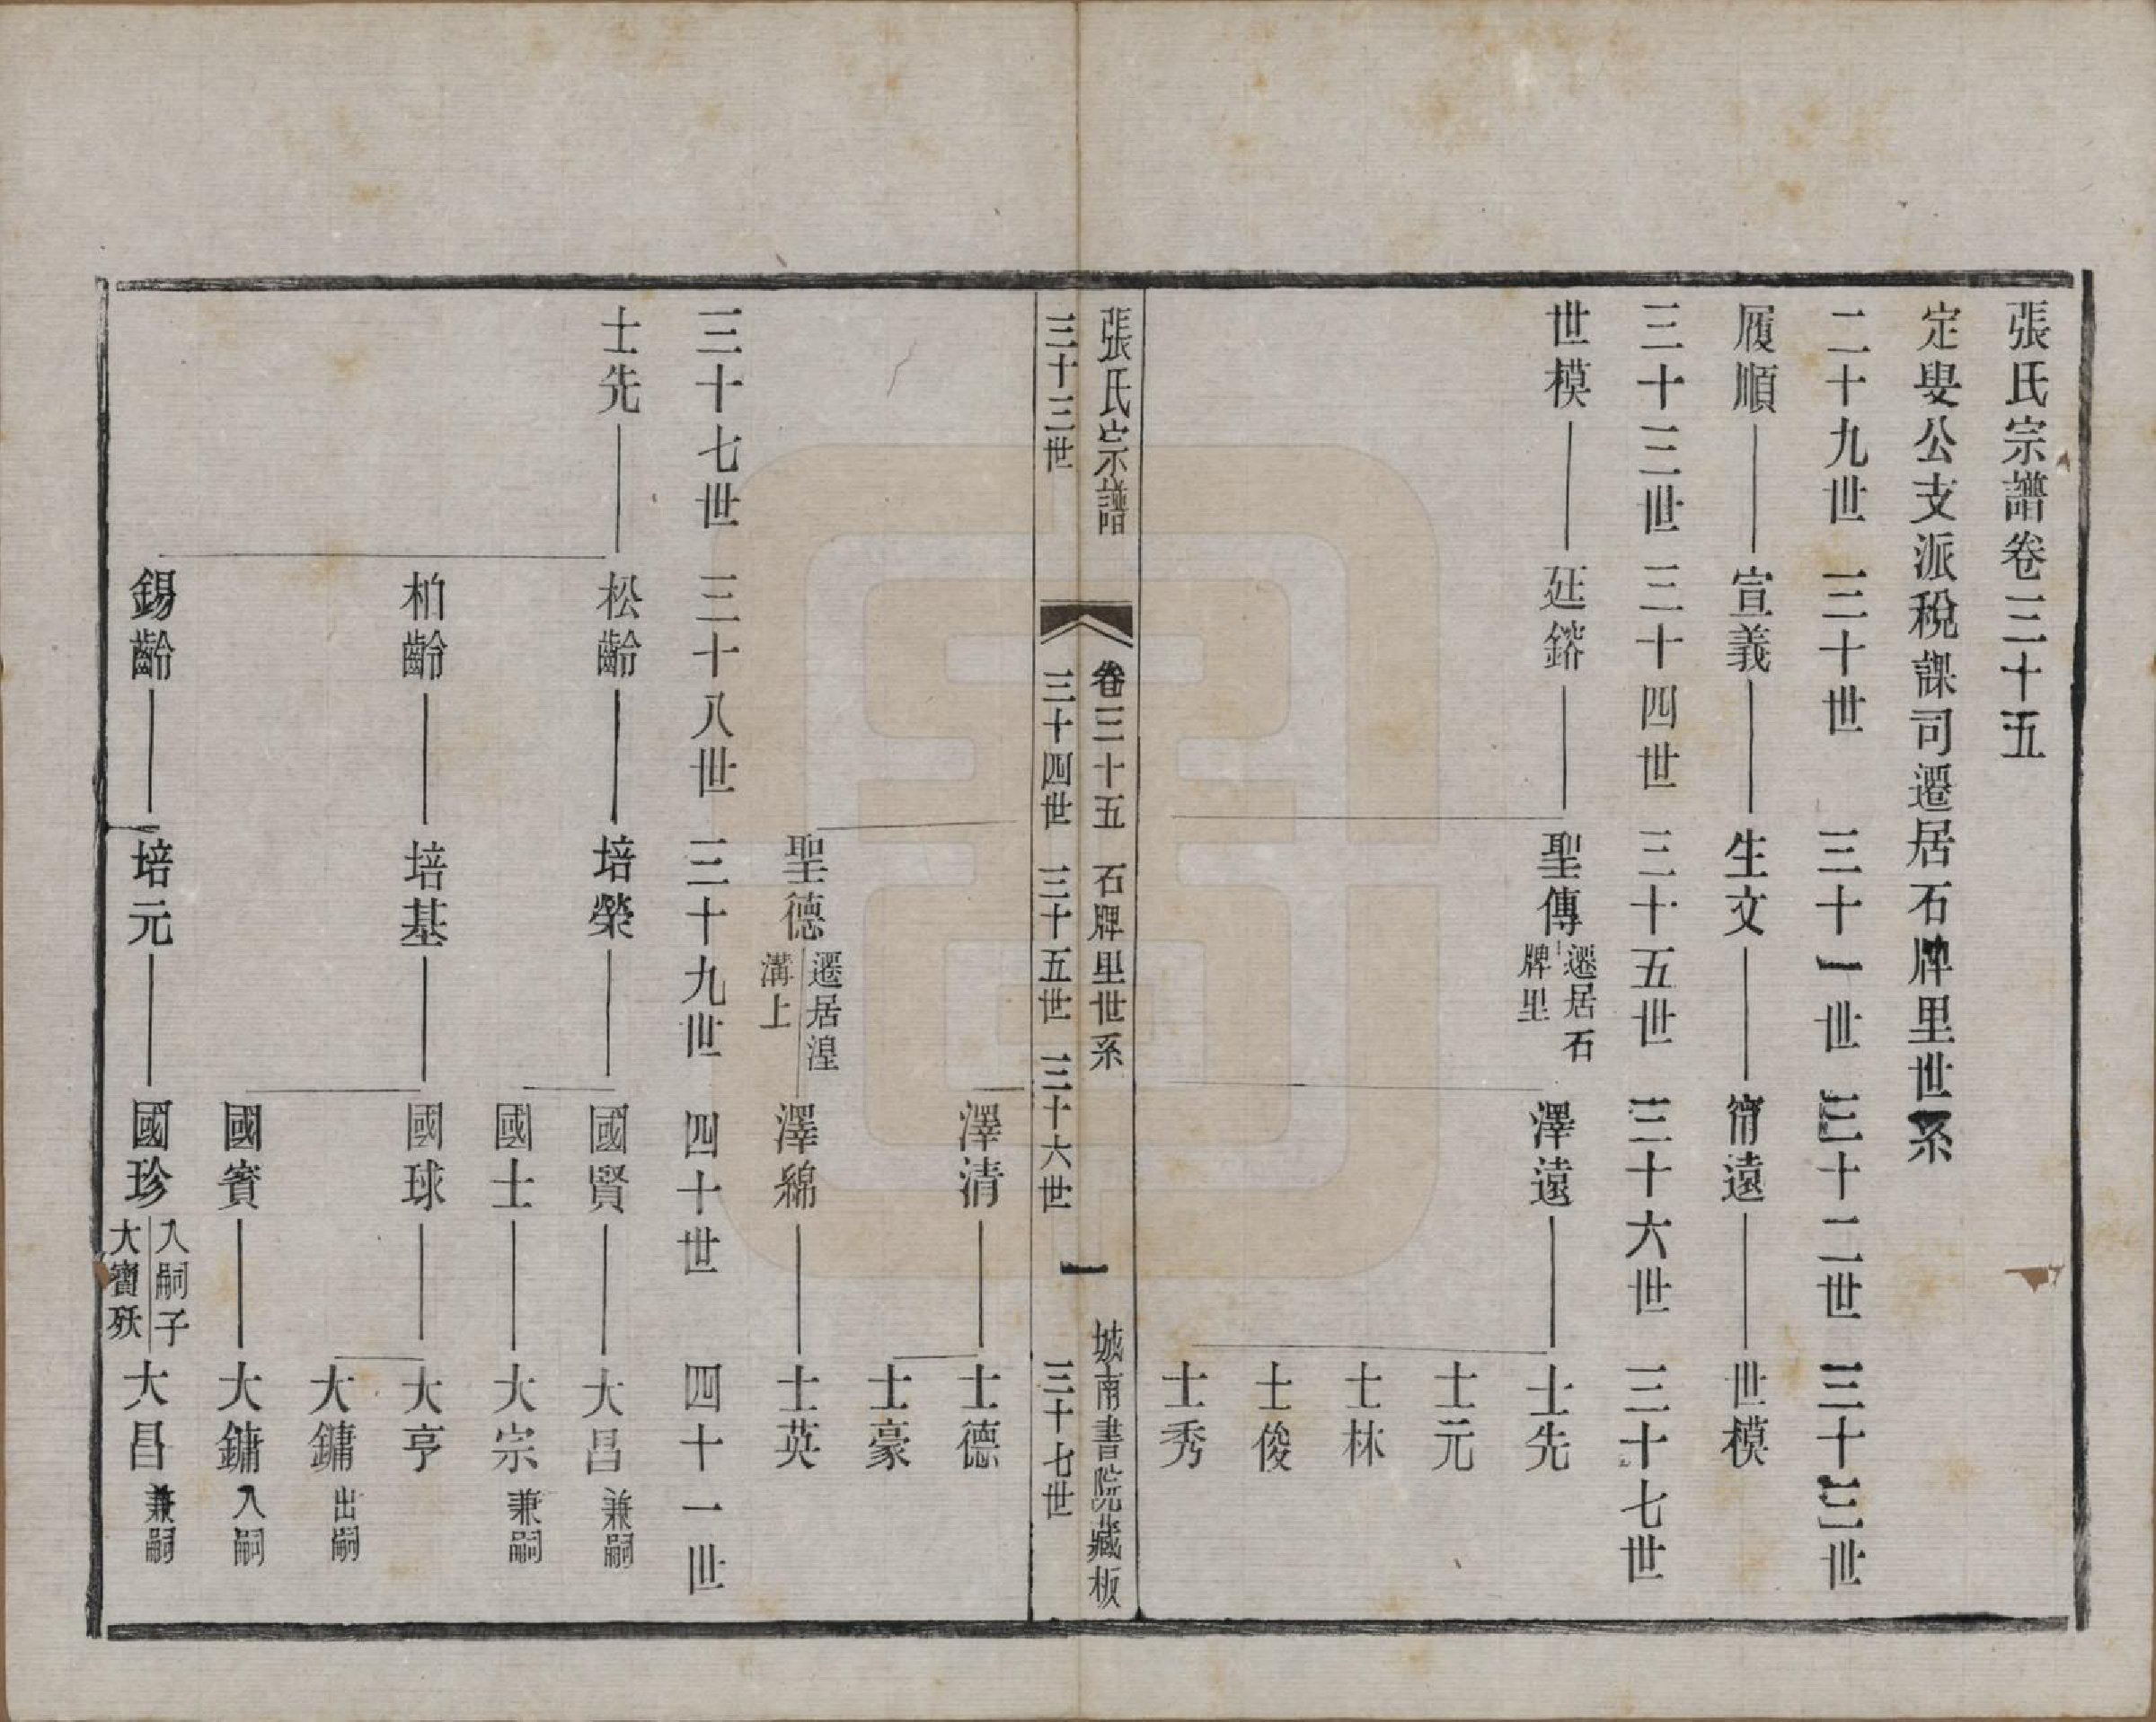 張氏宗譜卷三十五
定叟公支派稅課司遷居石牌里世系
二十九世 三十世 三十一世 三十二世 三十三世
履順 宣義 生文 甯遠 世模
三十三世 三十四世 三十五世 三十六世 三十七世
世模 廷鎔 聖傳 遷居石牌里 澤遠 士先
士元
士林
士俊
士秀
張氏宗譜 卷三十五 石牌里世系 一 城南書院藏板
三十三世 三十四世 三十五世 三十六世 三十七世
澤清 士德
士豪
聖德 遷居湟溝上 澤綿 士英
三十七世 三十八世 三十九世 四十世 四十一世
士先 松齡 培榮 國賢 大昌 兼嗣
國士 大宗 兼嗣
柏齡 培基 國球 大亨
大鏞 出嗣
國賓 大鏞 入嗣
錫齡 培元 國珍 入嗣子大賓殀 大昌 兼嗣